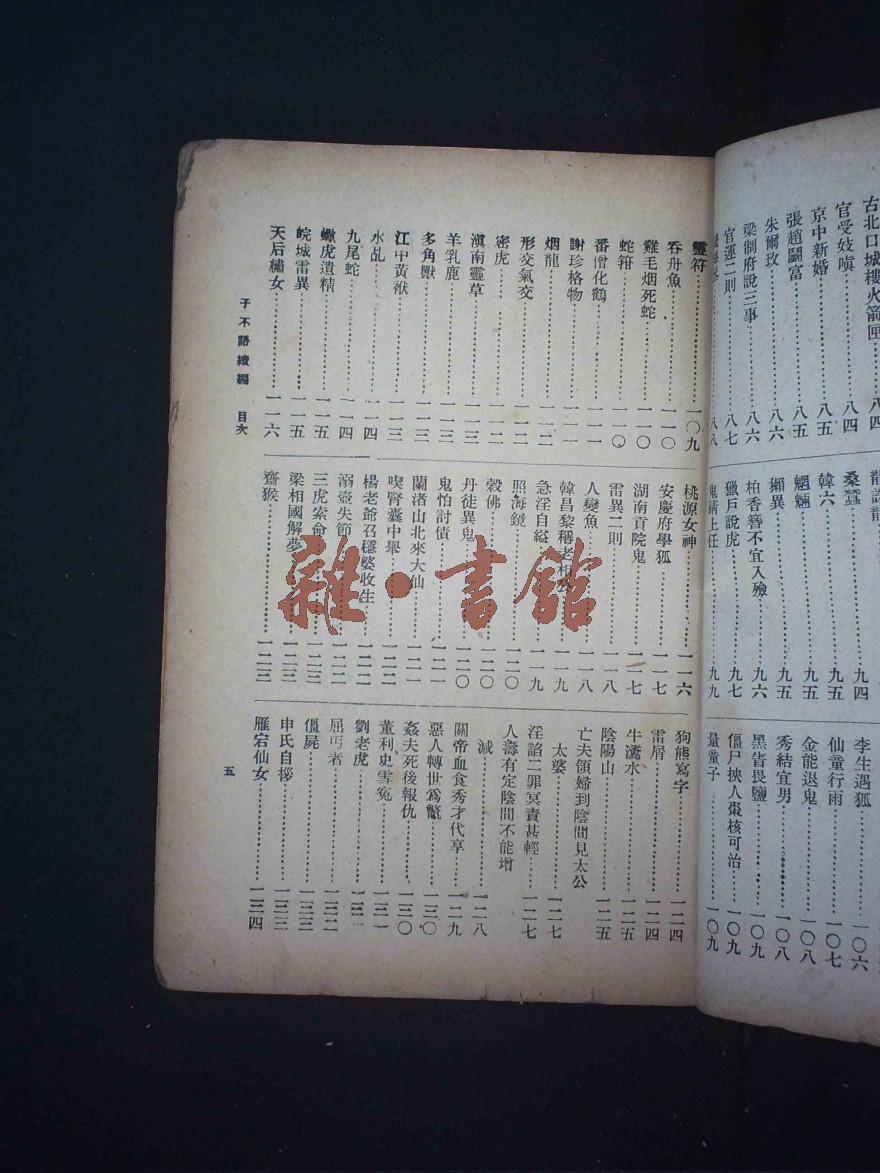 古北口城樓火箭匣……八四
官受妓嗔……八四
京中新婚……八五
張趙鬭富……八五
朱爾玫……八六
梁制府說三事……八六
官運二則……八七
八八
龍
桑蠶……九四
韓六……九五
魍魎……九五
獺異……九五
柏香簪不宜入殮……九六
獵戶說虎……九七
鬼請上任……九九
李生遇狐……一〇六
仙童行雨……一〇七
金能退鬼……一〇八
秀結宜男……一〇八
黑眚畏鹽……一〇九
僵尸挾人棗核可治……一〇九
量童子……一〇九
靈符……一〇九
吞舟魚……一一〇
雞毛烟死蛇……一一〇
蛇箝……一一〇
番僧化鶴……一一一
謝珍格物……一一一
烟龍……一一二
形交氣交……一一二
密虎……一一二
滇南靈草……一一三
羊乳鹿……一一三
多角獸……一一三
江中黃袱……一一三
水乩……一一四
九尾蛇……一一四
蠍虎遺精……一一五
皖城雷異……一一五
天后繡女……一一六
桃源女神……一一六
安慶府學狐……一一七
湖南貢院鬼……一一七
雷異二則……一一八
人變魚……一一八
韓昌黎稱老相公……一一九
急淫自縊……一一九
照海鏡……一二〇
穀佛……一二〇
丹徒異鬼……一二〇
鬼怕討債……一二一
蘭渚山北來大仙……一二一
喫腎囊中舉……一二二
楊老爺召穩婆收生……一二二
溺壺失節……一二二
三虎索命……一二三
梁相國解夢……一二三
齋猴……一二三
狗熊寫字……一二四
雷屑……一二四
牛瀆水……一二五
陰陽山……一二五
亡夫領婦到陰間見太公
太婆……一二七
淫諂二罪冥責甚輕……一二七
人壽有定陰間不能增
減……一二八
關帝血食秀才代享……一二九
惡人轉世爲鼈……一三〇
姦夫死後報仇……一三〇
董刺史雪寃……一三一
劉老虎……一三二
屈丐者……一三二
僵屍……一三三
申氏自拶……一三三
雁宕仙女……一三四
子不語續編　目次
五
雜·書館